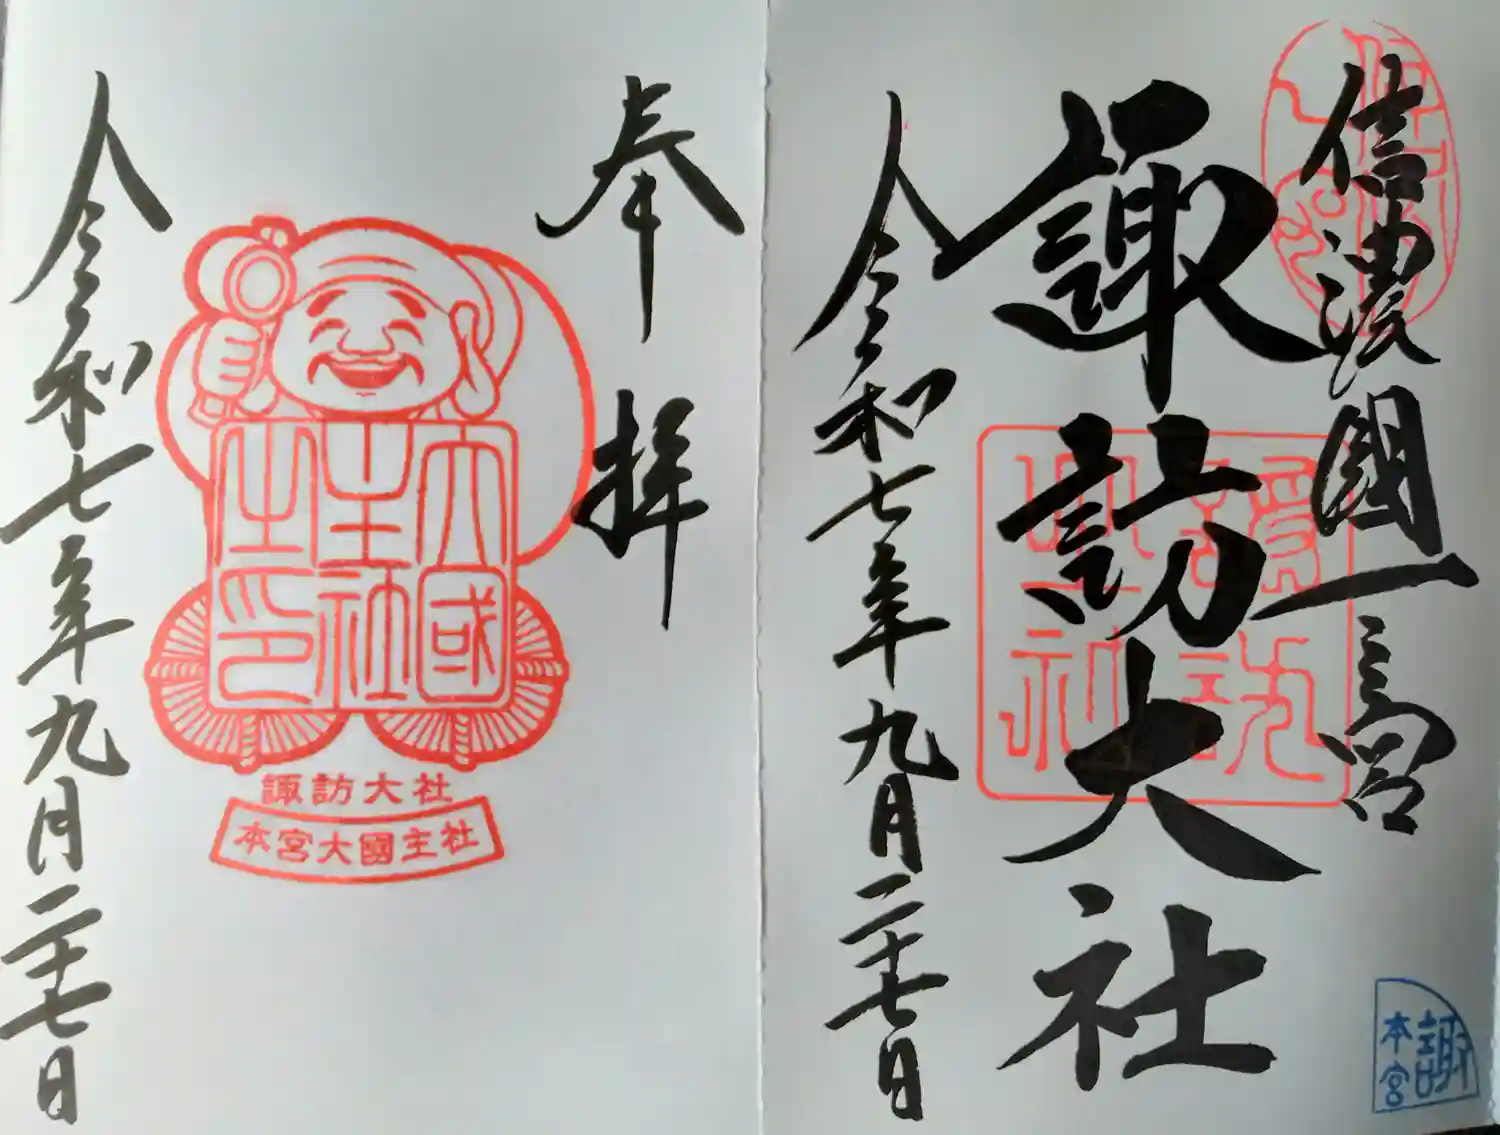 信濃國一之宮
諏訪大社
令和七年九月二十七日
諏
本宮
奉拝
大國
主社
之印
諏訪大社
本宮大國主社
令和七年九月二十七日